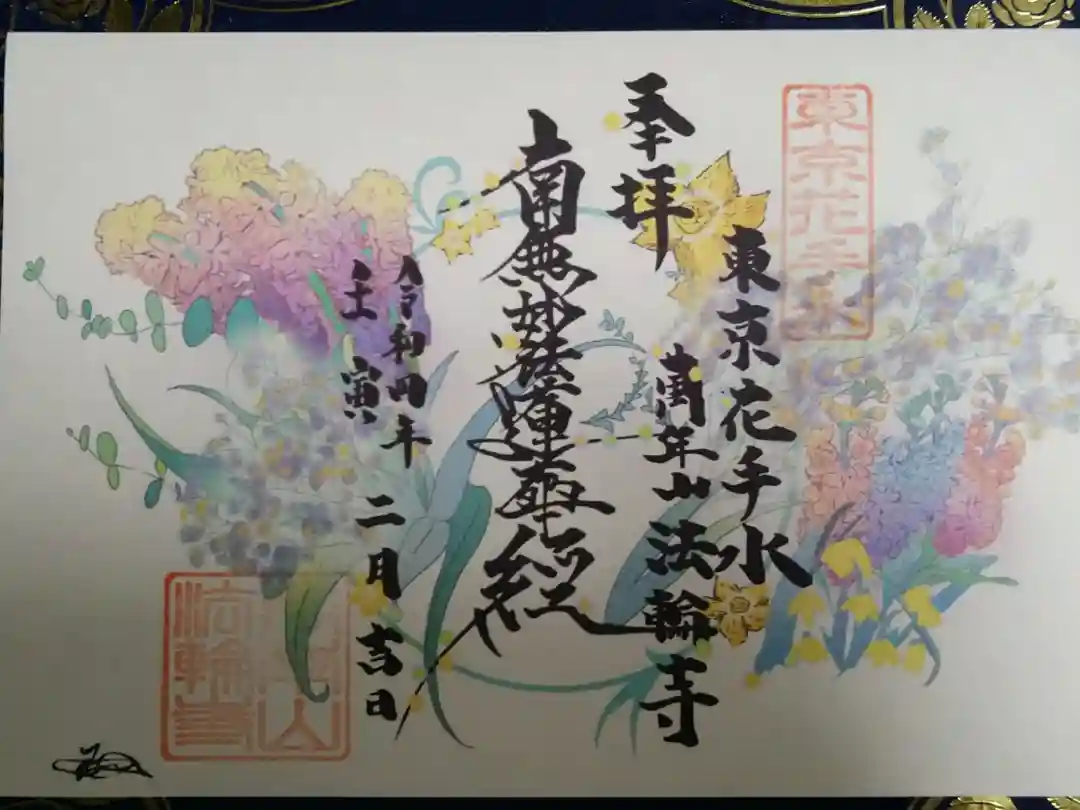 東京花手水
奉拝
東京花手水
萬年山法輪寺
南無妙法蓮華經
令和四年
壬寅
二月吉日